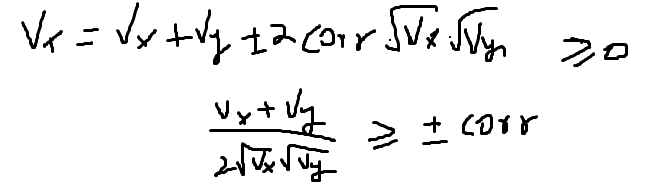 Vr = Vx + Vy ± 2 Corr √Vx √Vy ≥ 0
Vx + Vy / 2√Vx √Vy ≥ ± corr